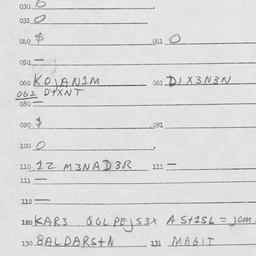 030 0
031 0
040 $ 041 0
050 —
060 KOJAN1M 061 D1X3N3N
062 DYXNT
080 —
090 $ 091
100 0
110 12 M3NAD3R 111 —
111 —
112 —
120 KAR3 QGLPEJS3X A5+1S6 = JOM
130 BALDARS+N 131 MAGIT